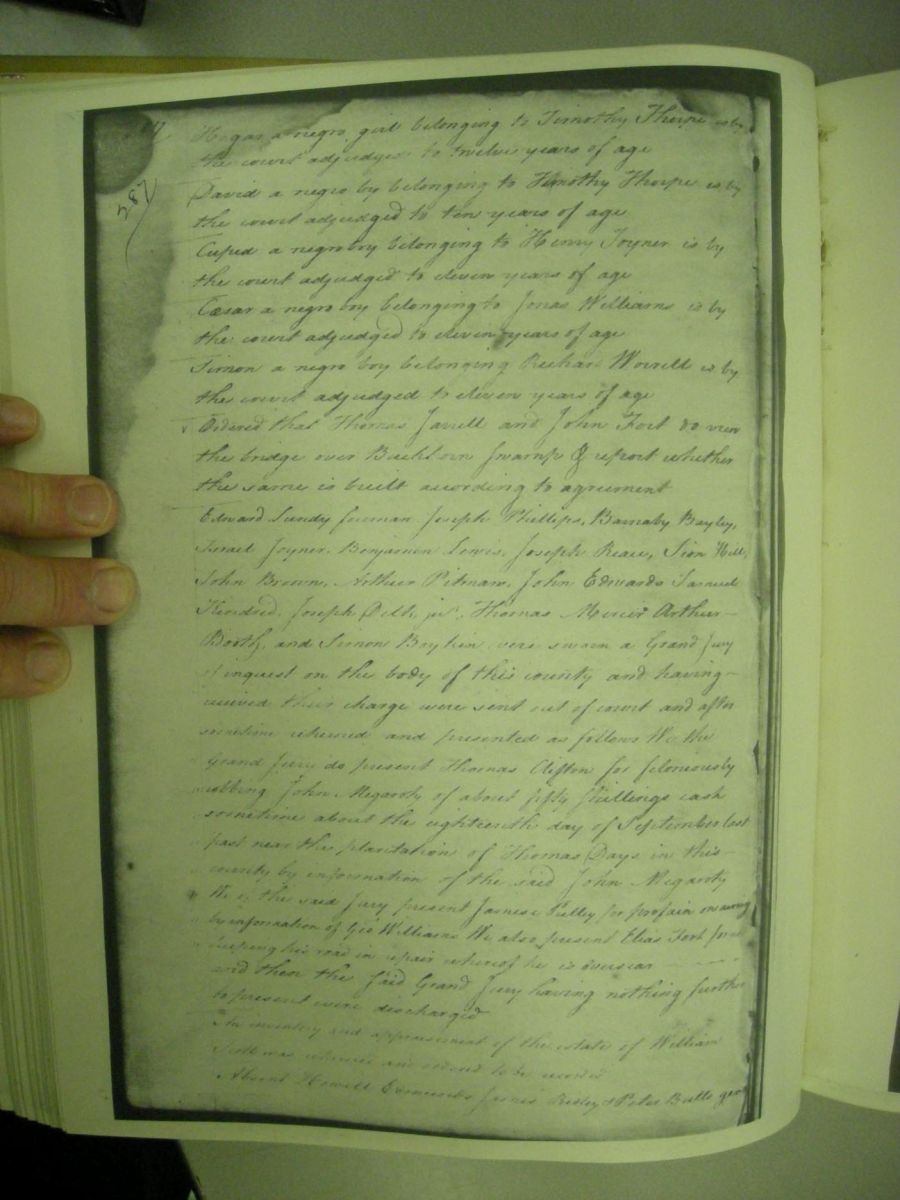 287
Hagar a negro girl belonging to Timothy Thorpe is by
the court adjudged to twelve years of age
David a negro boy belonging to Timothy Thorpe is by
the court adjudged to ten years of age
Cupid a negro boy belonging to Henry Joyner is by
the court adjudged to eleven years of age
Cæsar a negro boy belonging to Jonas Williams is by
the court adjudged to eleven years of age
Simon a negro boy belonging Richard Worrell is by
the court adjudged to eleven years of age
Ordered that Thomas Jarrell and John Fort do view
the bridge over Buckhorn Swamp & report whether
the same is built according to agreement
Edward Lundy foreman Joseph Phillips, Barnaby Bayley,
Israel Joyner, Benjamin Lewis, Joseph Reaux, Sion Hill,
John Brown, Arthur Pitman, John Edwards Samuel
Kindred, Joseph Delk, junr., Thomas Mercer Arthur
Booth, and Simon Boykin were sworn a Grand Jury
of inquest on the body of this county and having
received their charge were sent out of court and after
sometime returned and presented as follows We the
Grand Jury do present Thomas Clifton for feloneously
robbing John Megarity of about fifty shillings cash
sometime about the eighteenth day of September last
past near the plantation of Thomas Days in this
county by information of the said John Megarity
We the said Jury present James Pulley for profain swearing
by information of Geo Williams We also present Elias Fort for not
keeping his road in repair whereof he is overseer
and then the said Grand Jury having nothing further
to present were discharged
An inventory and appraisement of the estate of William
was returned and ordered to be recorded
Absent Howell Edmunds James Ridley & Peter Butts gent